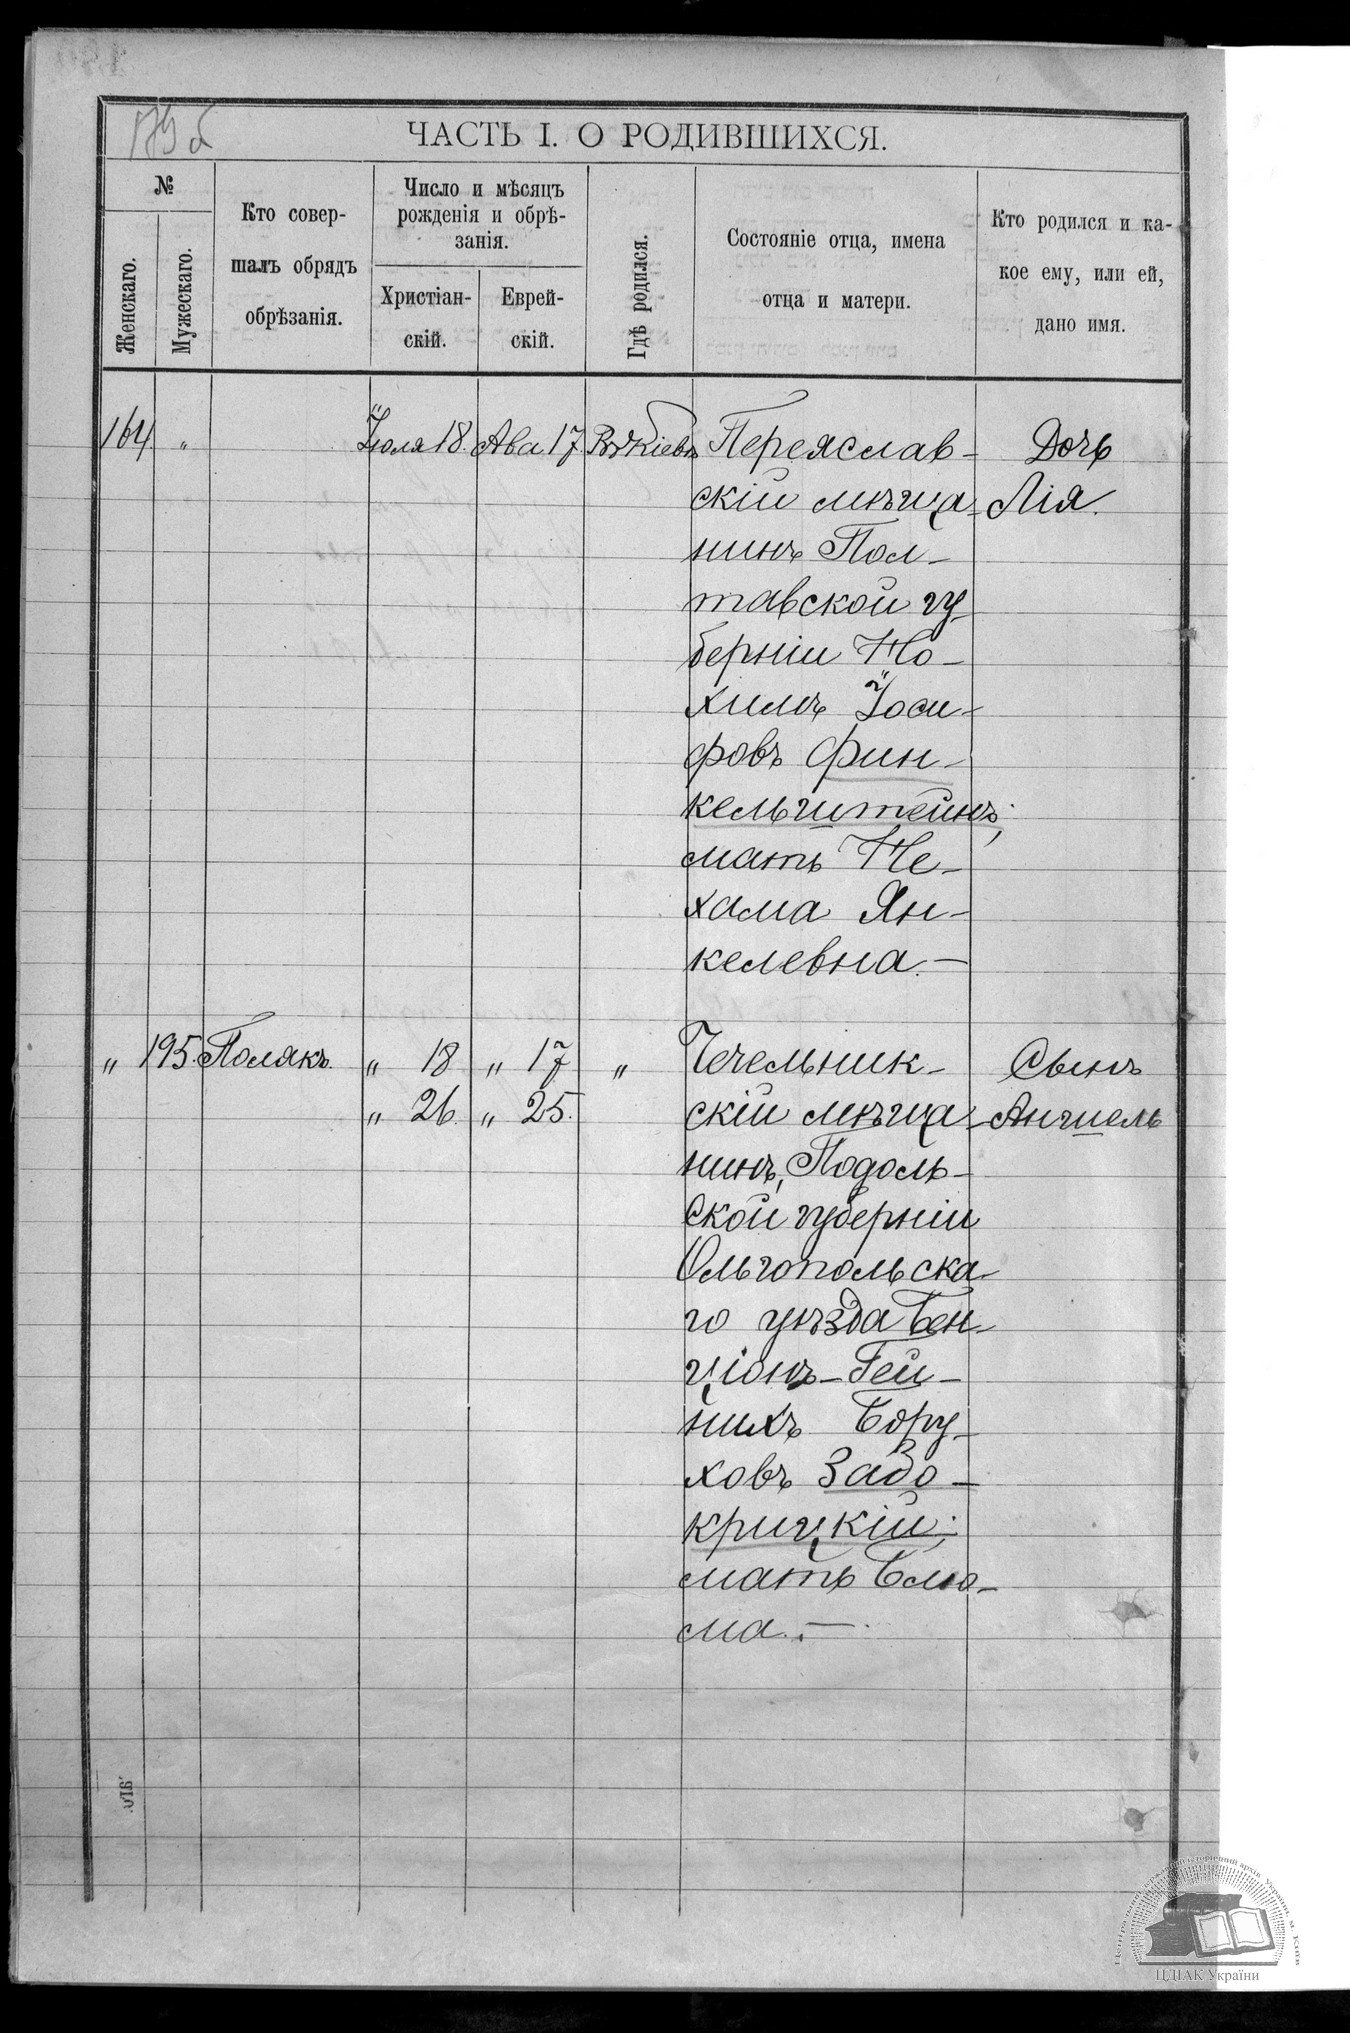 179 б
ЧАСТЬ I. О РОДИВШИХСЯ.
№
Женскаго.
Мужескаго.
Кто совер-
шалъ обрядъ
обрѣзанія.
Число и мѣсяцъ
рожденія и обрѣ-
занія.
Христіан-
скій.
Еврей-
скій.
Гдѣ родился.
Состояніе отца, имена
отца и матери.
Кто родился и ка-
кое ему, или ей,
дано имя.
164 „ Іюля 18. Ава 17. Въ Кіевѣ Переяслав- Дочь
скій мѣща- Лія.
нинъ Пол-
тавской гу-
берніи Но-
химъ Іоси-
фовъ Фин-
кельштейнъ;
мать Не-
хама Ян-
келевна.—
„ 195. Полякъ. „ 18 „ 17 „ Чечельник- Сынъ
„ 26. „ 25. скій мѣща- Аншель
нинъ, Подоль-
ской губерніи
Ольгопольска-
го уѣзда Бен-
ціонъ-Гей-
нихъ Бору-
ховъ Задо-
крицкій;
мать Блю-
ма.—
ЦДІАК України